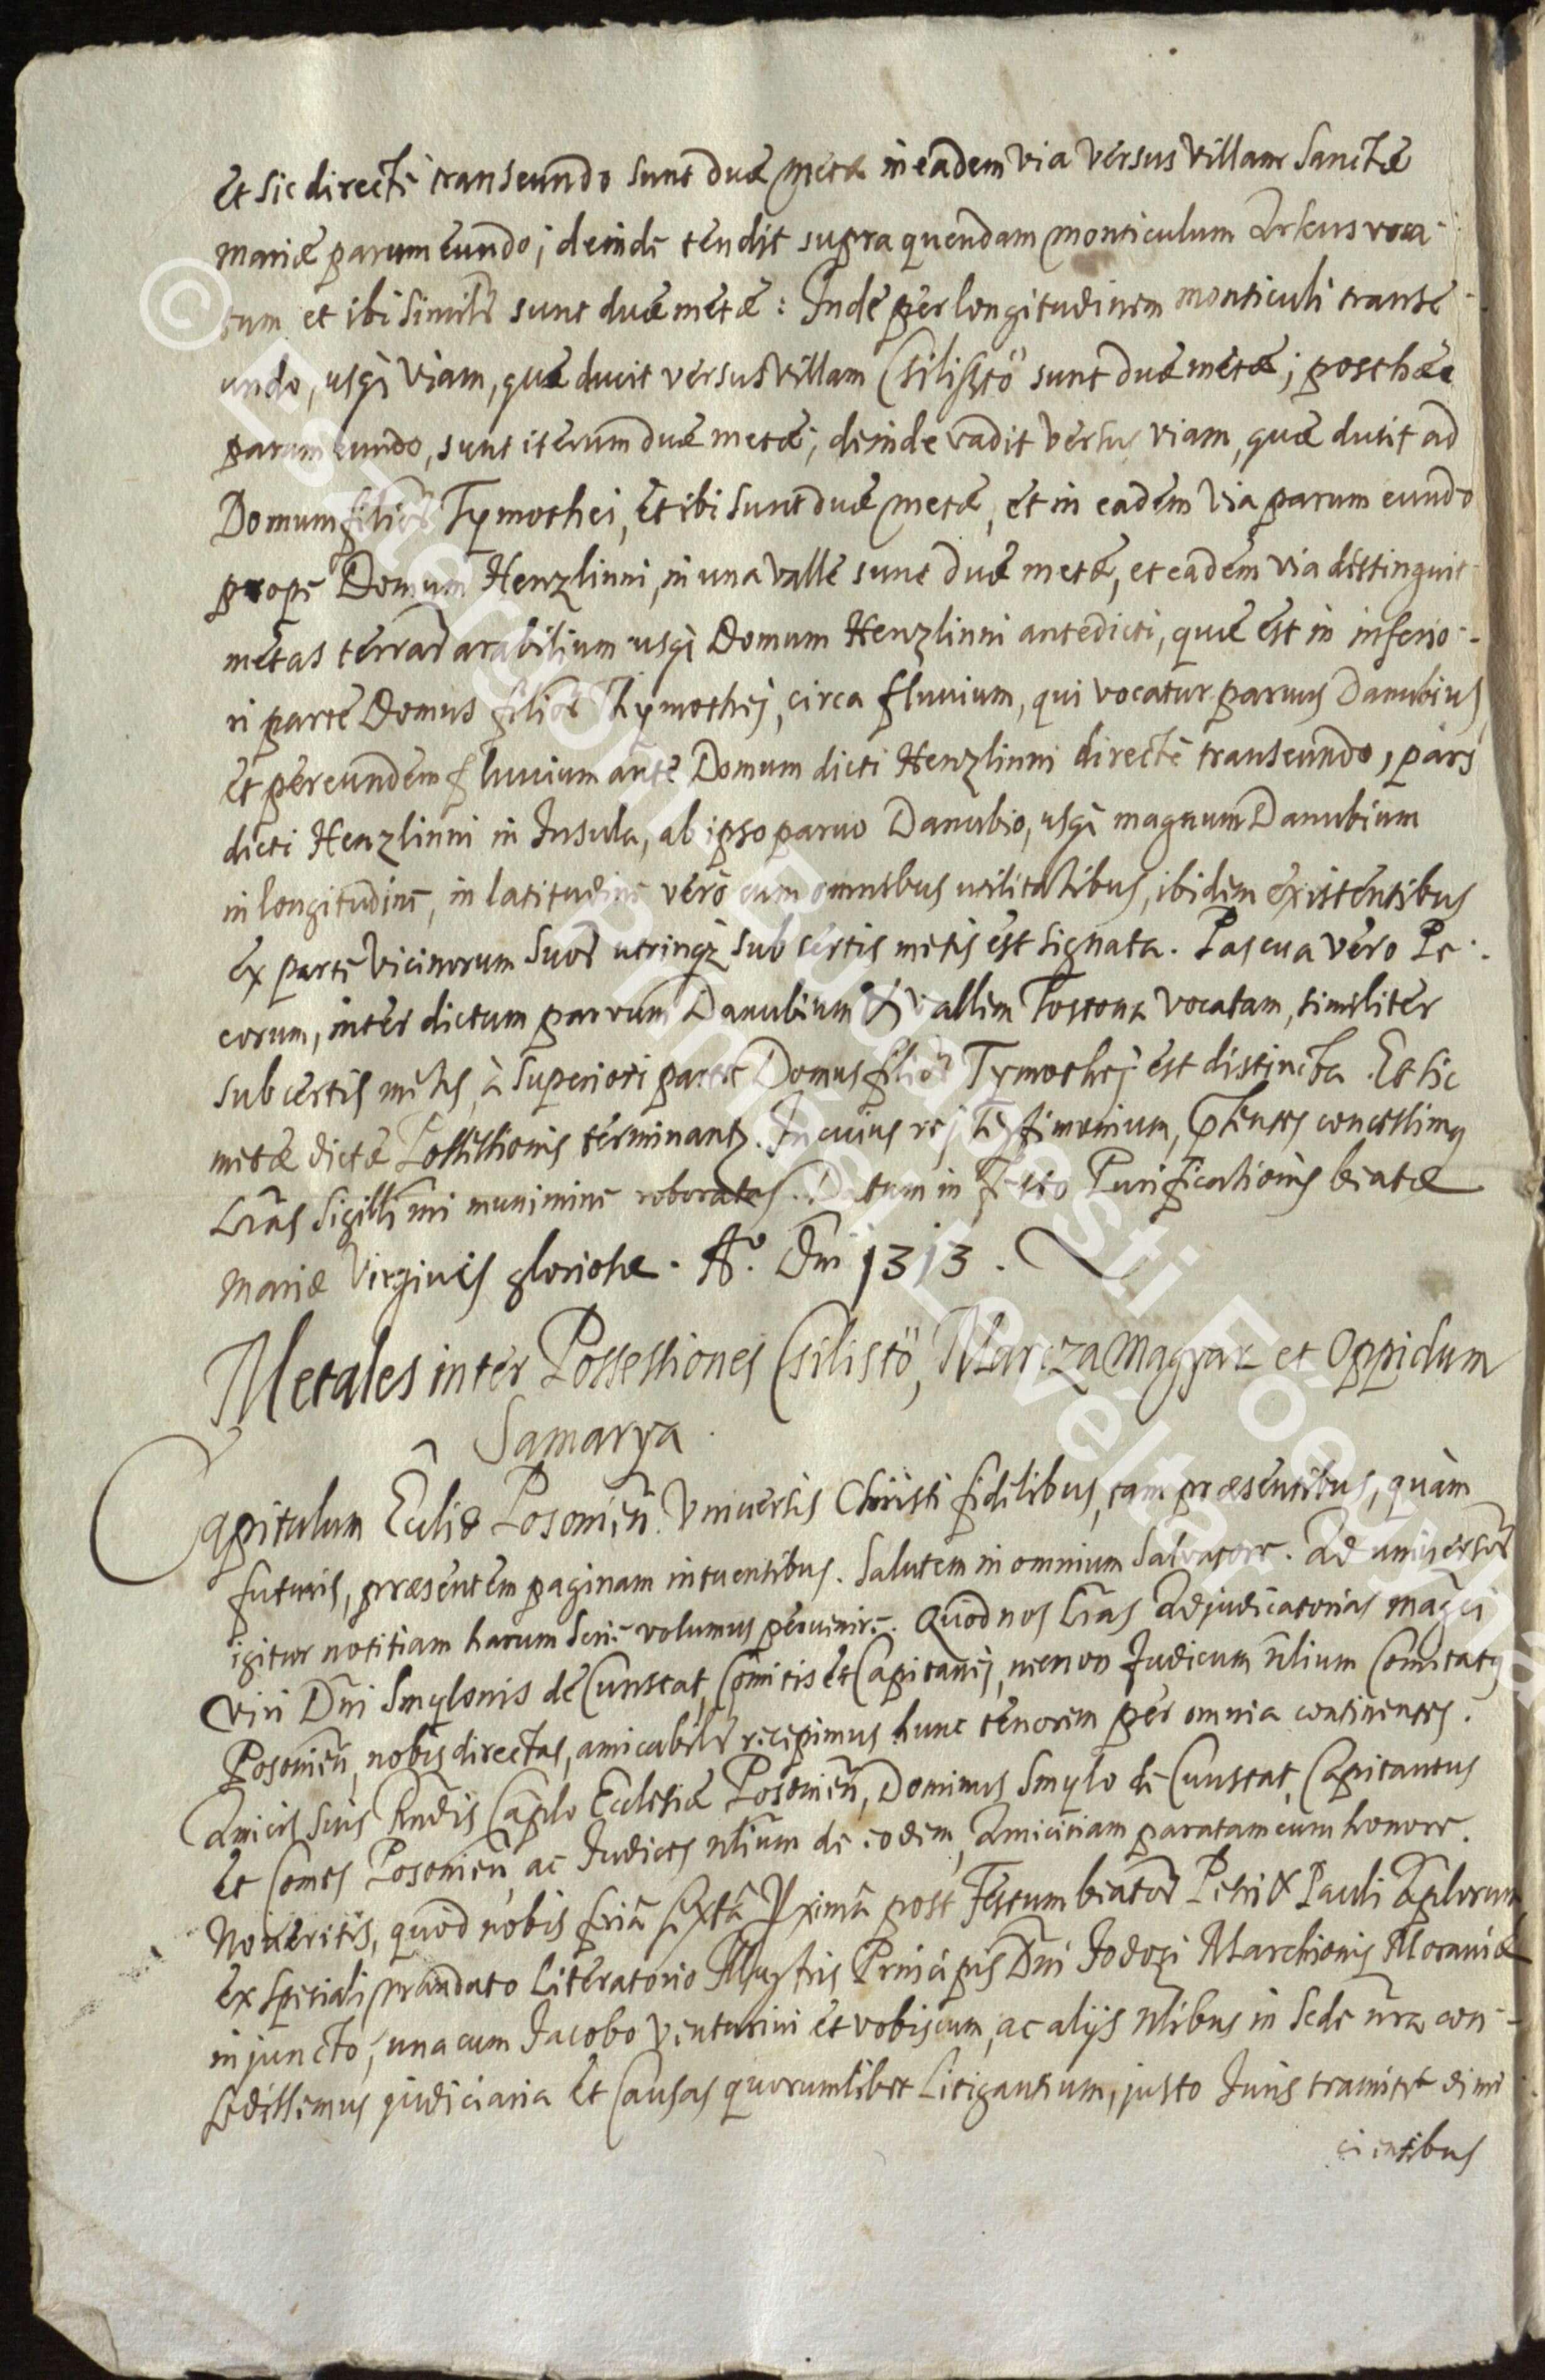 Et sic directè transeundo sunt duæ metæ in eadem via versus villam Sanctæ
Mariæ parum eundo; deinde tendit supra quendam monticulum Arkus voca-
tum et ibi similr sunt duæ metæ: Inde per longitudinem monticuli transe-
undo, usq; viam, quæ ducit versus villam Csilisztö sunt duæ metæ; posthæc
parum eundo, sunt iterum duæ metæ; deinde vadit versus viam, quæ ducit ad
Domum filior Tymothei, Et ibi sunt duæ metæ, et in eadem via parum eundo
prope Domum Henzlinni, in una valle sunt duæ metæ, et eadem via distinguit
metas terrar arabilium usq; Domum Henzlinni antedicti, quæ est in inferio-
ri parte Domus filior Thymothej, circa fluuium, qui vocatur paruus Danubius,
et per eundem fluuium ante Domum dicti Henzlinni directè transeundo, pars
dicti Henzlinni in Insula, ab ipso paruo Danubio, usq; magnum Danubium
in longitudine, in latitudine verò cum omnibus utilitatibus, ibidem existentibus
ex parte vicinorum suor utrinq; sub certis metis est signata. Pascua vero Pe-
corum, inter dictum parvum Danubium & vallem Tostona vocatam, similiter
sub certis metis, à superiori parte Domus filior Tymothej est distincta. Et sic
metæ dictæ Possessionis terminantr. In cuius rej testimonium, pntes concessimus
Lras sigilli nri munimine roboratas. Datum in festo Purificationis beatæ
Mariæ Virginis gloriosæ. Ao. Dni 1313.
Metales inter Possessiones Csilistö, Marcza Magyar et Oppidum
Samarya.
Capitulum Ecliæ Posonien. Vniuersis Christi fidelibus, tam præsentibus, quàm
futuris, præsentem paginam intuentibus. Salutem in omnium Salvatore. Ad universor
igitur notitiam harum serie volumus peruenire. Quod nos Lras Adjudicatorias magci
viri Dni Smylonis de Cunstat, Comitis et Capitanej, necnon Judicum nlium Comitatus
Posonien, nobis directas, amicabilr recepimus hunc tenorem per omnia continentes.
Amicis suis Rndis Caplo Ecclesiæ Posonien, Dominus Smylo de Cunstat, Capitaneus
Et Comes Posonien, ac Judices nlium de eodem, Amicitiam paratam cum honore.
Noveritis, quod nobis feria sexta pxima post Festum beator Petri & Pauli Aplorum,
ex speciali mandato Literatorio Illustris Principis Dni Jodoci Marchionis Morauiæ
injuncto, una cum Jacobo Venturini et vobiscum, ac alijs nlibus in sede nra con-
sedissemus judiciaria Et Causas quorumlibet Litigantium, justo Juris tramite dimi
cientibus
© Esztergom-Budapesti Főegyházmegye
Prímási Levéltár